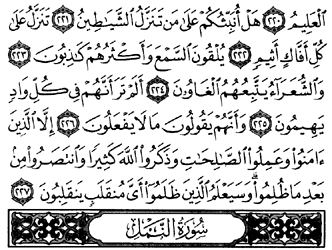 ٱلْعَلِيمُ ۝٢٢٠ هَلْ أُنَبِّئُكُمْ عَلَىٰ مَن تَنَزَّلُ ٱلشَّيَٰطِينُ ۝٢٢١ تَنَزَّلُ عَلَىٰ
كُلِّ أَفَّاكٍ أَثِيمٍ ۝٢٢٢ يُلْقُونَ ٱلسَّمْعَ وَأَكْثَرُهُمْ كَٰذِبُونَ ۝٢٢٣
وَٱلشُّعَرَآءُ يَتَّبِعُهُمُ ٱلْغَاوُۥنَ ۝٢٢٤ أَلَمْ تَرَ أَنَّهُمْ فِى كُلِّ وَادٍ
يَهِيمُونَ ۝٢٢٥ وَأَنَّهُمْ يَقُولُونَ مَا لَا يَفْعَلُونَ ۝٢٢٦ إِلَّا ٱلَّذِينَ
ءَامَنُوا۟ وَعَمِلُوا۟ ٱلصَّٰلِحَٰتِ وَذَكَرُوا۟ ٱللَّهَ كَثِيرًا وَٱنتَصَرُوا۟ مِنۢ
بَعْدِ مَا ظُلِمُوا۟ ۗ وَسَيَعْلَمُ ٱلَّذِينَ ظَلَمُوٓا۟ أَىَّ مُنقَلَبٍ يَنقَلِبُونَ ۝٢٢٧
سُورَةُ النَّمْلِ